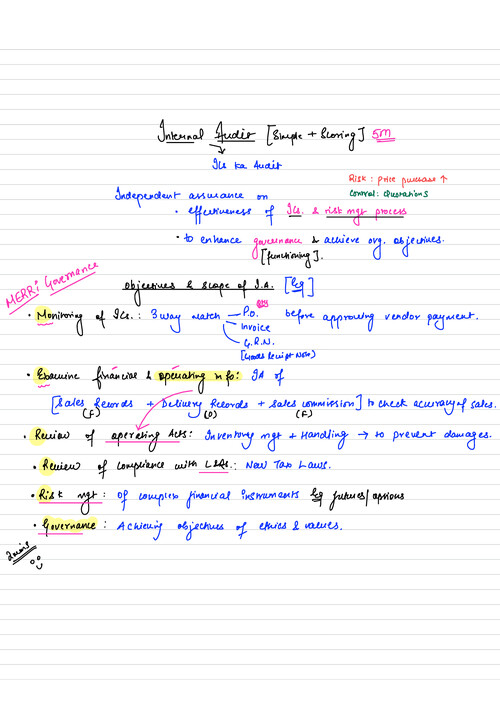 Internal Audit [Simple + Scoring] 5M
ICs ka Audit
Risk : Price purchase ↑
Control : Quotations
Independent assurance on
• effectiveness of ICs. & risk mgt process
• to enhance governance & achieve org. objectives.
[functioning].
MERR! Governance
Objectives & scope of I.A. [Eg]
• Monitoring of ICs. : 3 way match P.O. before approving vendor payment.
Invoice
G.R.N.
(Goods Receipt Note)
• Examine financial & operating info : IA of
[Sales Records + Delivery Records + Sales Commission] to check accuracy of sales.
(F) (O) (F)
• Review of operating Acts : Inventory mgt + Handling → to prevent damages.
• Review of Compliance with L&Rs. : New Tax Laws.
• Risk mgt : Of complex financial instruments Eg futures/options
• Governance : Achieving objectives of ethics & values.
2 mins